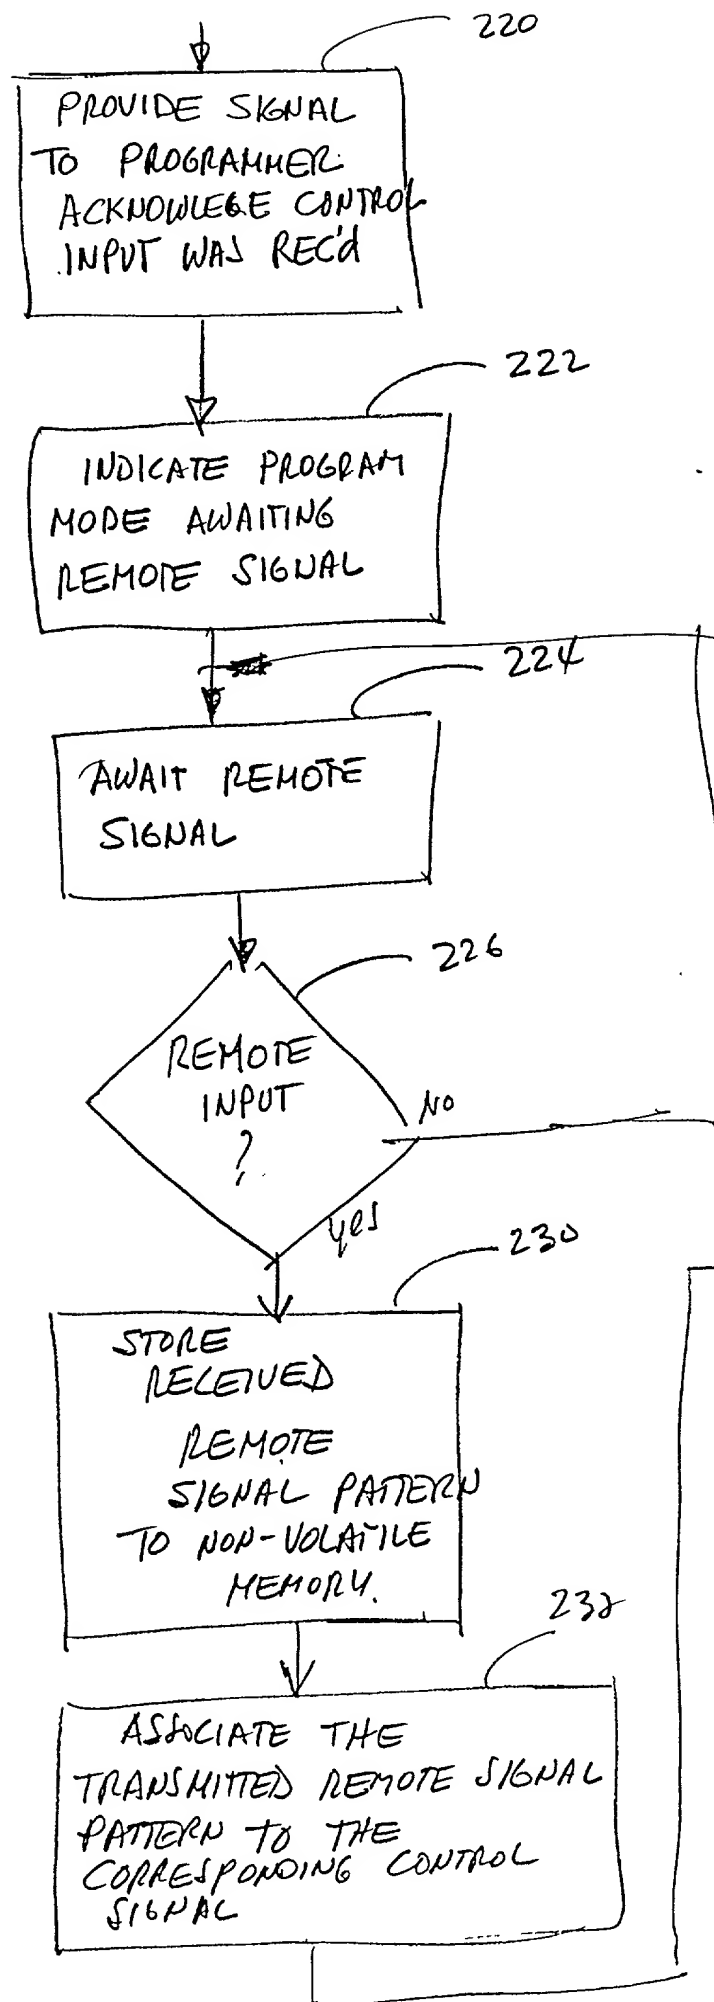 220
PROVIDE SIGNAL
TO PROGRAMMER
ACKNOWLEGE CONTROL
INPUT WAS REC'd
222
INDICATE PROGRAM
MODE AWAITING
REMOTE SIGNAL
224
AWAIT REMOTE
SIGNAL
226
REMOTE
INPUT
?
NO
yes
230
STORE
RECEIVED
REMOTE
SIGNAL PATTERN
TO NON-VOLATILE
MEMORY.
232
ASSOCIATE THE
TRANSMITTED REMOTE SIGNAL
PATTERN TO THE
CORRESPONDING CONTROL
SIGNAL